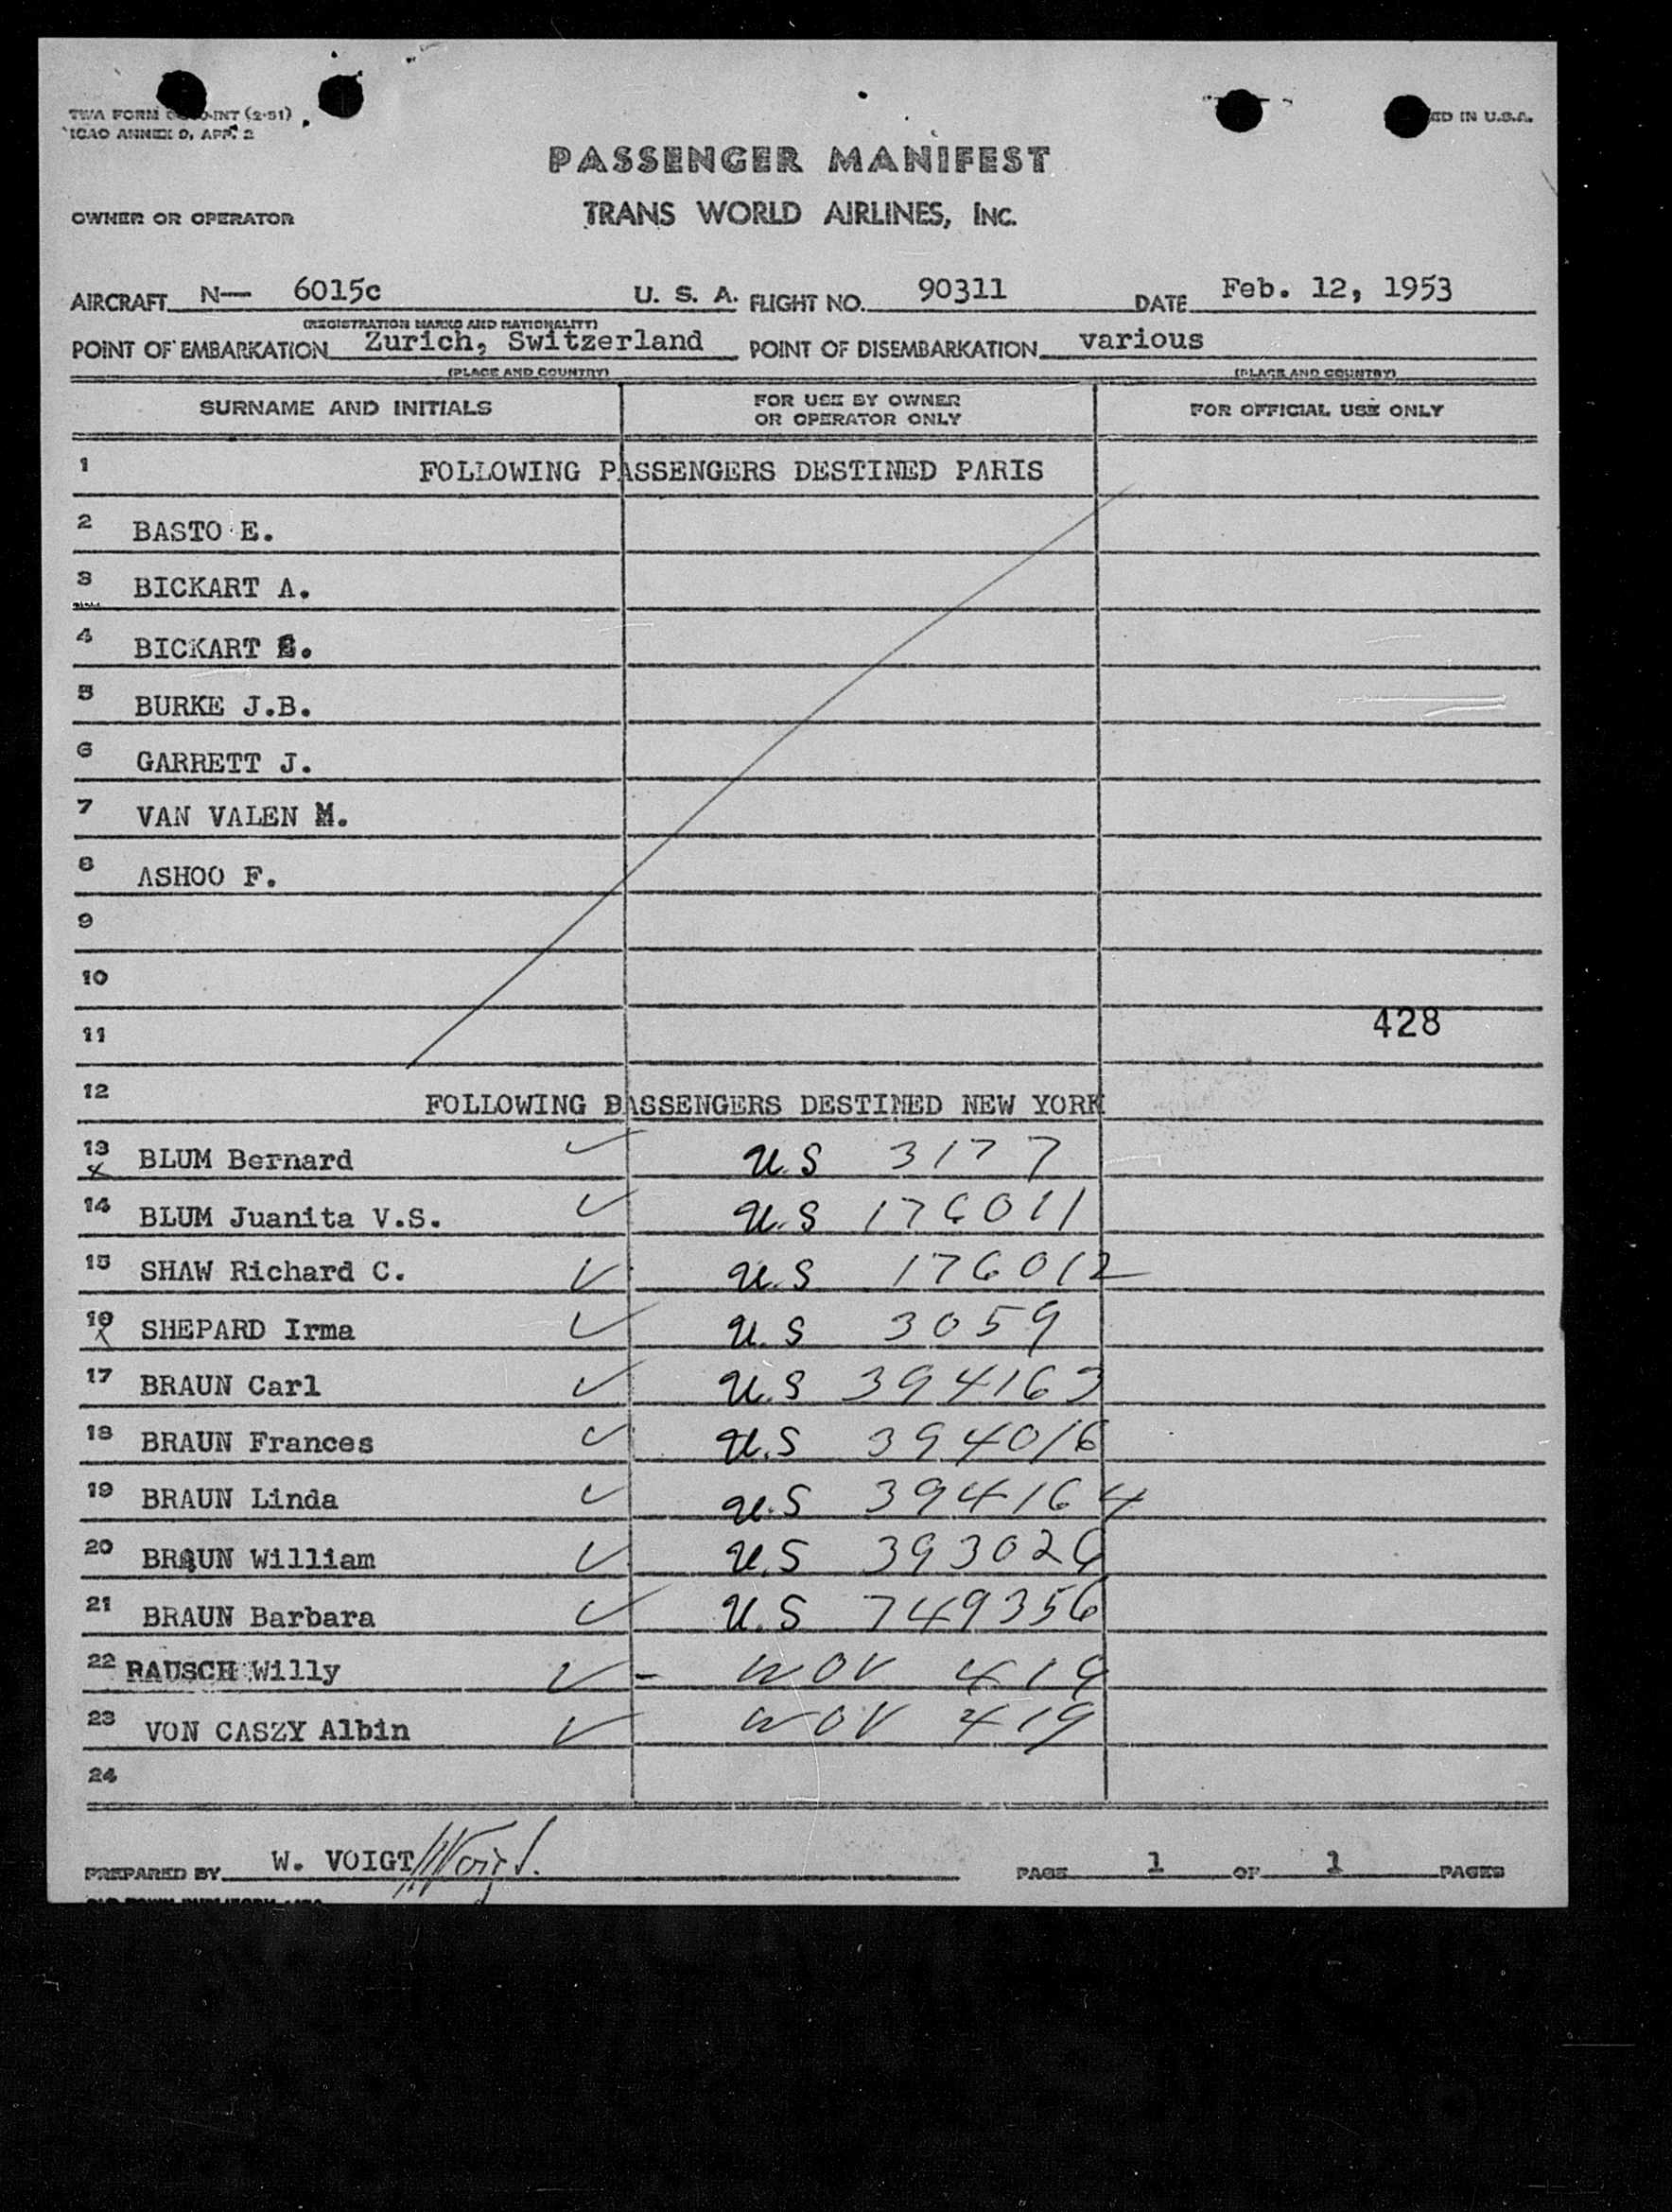 TWA FORM INT (2-51)
ICAO ANNEX 9, APP. 2
ED IN U.S.A.
PASSENGER MANIFEST
OWNER OR OPERATOR TRANS WORLD AIRLINES, INC.
AIRCRAFT N— 6015c U. S. A. FLIGHT NO. 90311 DATE Feb. 12, 1953
(REGISTRATION MARKS AND NATIONALITY)
POINT OF EMBARKATION Zurich, Switzerland POINT OF DISEMBARKATION various
(PLACE AND COUNTRY) (PLACE AND COUNTRY)
SURNAME AND INITIALS FOR USE BY OWNER OR OPERATOR ONLY FOR OFFICIAL USE ONLY
1 FOLLOWING PASSENGERS DESTINED PARIS
2 BASTO E.
3 BICKART A.
4 BICKART
5 BURKE J.B.
6 GARRETT J.
7 VAN VALEN M.
8 ASHOO F.
9
10
11 428
12 FOLLOWING PASSENGERS DESTINED NEW YORK
13 x BLUM Bernard ✓ U.S 3177
14 BLUM Juanita V.S. ✓ U.S 176011
15 SHAW Richard C. ✓ U.S 176012
16 x SHEPARD Irma ✓ U.S 3059
17 BRAUN Carl ✓ U.S 394163
18 BRAUN Frances ✓ U.S 394016
19 BRAUN Linda ✓ U.S 394164
20 BRAUN William ✓ U.S
21 BRAUN Barbara ✓ U.S 749356
22 RAUSCH Willy ✓ - WOV 419
23 VON CASZY Albin ✓ WOV 419
24
PREPARED BY W. VOIGT WVoigt. PAGE 1 OF 1 PAGES